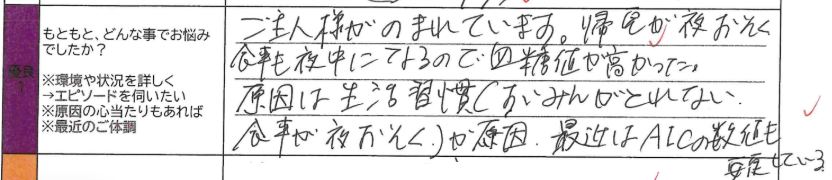 もともと、どんな事でお悩み
でしたか？
※環境や状況を詳しく
→エピソードを伺いたい
※原因の心当たりもあれば
※最近のご体調
優良
1
ご主人様がのまれています。帰宅が夜おそく
食事も夜中になるので血糖値が高かった。
原因は生活習慣(すいみんがとれてない.
食事が夜おそく.)が原因. 最近はA1Cの数値も
安定している